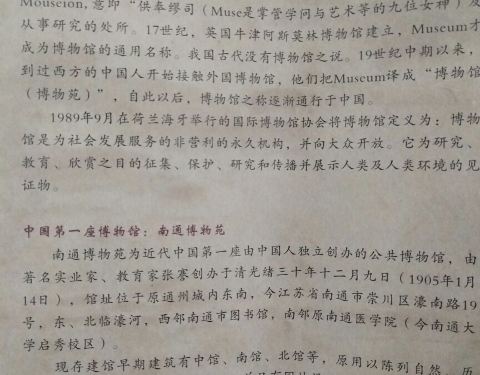 Mouseion,意即“供奉缪司(Muse是掌管学问与艺术等的九位女神)及
从事研究的处所。17世纪,英国牛津阿斯莫林博物馆建立,Museum才
成为博物馆的通用名称。我国古代没有博物馆之说。19世纪中期以来,
到过西方的中国人开始接触外国博物馆,他们把Museum译成“博物馆
(博物苑)”,自此以后,博物馆之称逐渐通行于中国。
1989年9月在荷兰海牙举行的国际博物馆协会将博物馆定义为:博物
馆是为社会发展服务的非营利的永久机构,并向大众开放。它为研究、
教育、欣赏之目的征集、保护、研究和传播并展示人类及人类环境的见
证物。
中国第一座博物馆:南通博物苑
南通博物苑为近代中国第一座由中国人独立创办的公共博物馆,由
著名实业家、教育家张謇创办于清光绪三十年十二月九日(1905年1月
14日),馆址位于原通州城内东南,今江苏省南通市崇川区濠南路19
号,东、北临濠河,西邻南通市图书馆,南邻原南通医学院(今南通大
学启秀校区)。
现存建馆早期建筑有中馆、南馆、北馆等,原用以陈列自然、历